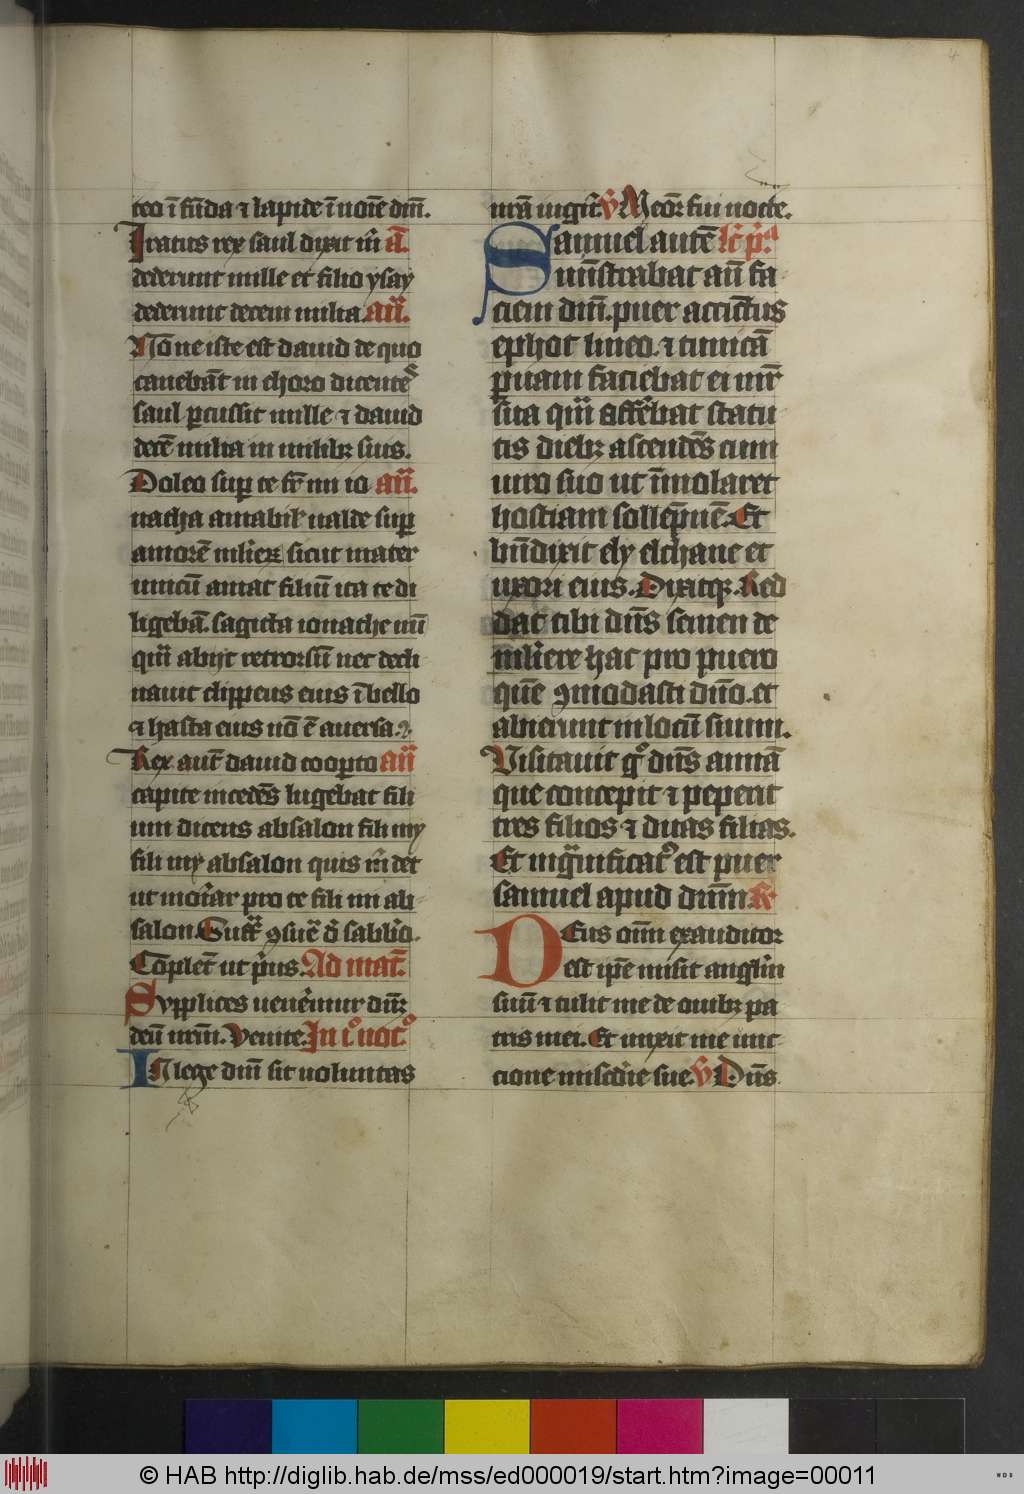 teo ī fūda ⁊ lapide ī noīe dnī.
Iratus rex saul dixit m̄ A͞
dederunt mille et filio ysay
dederunt decem milia. an̄
No͞ne iste est dauid de quo
canebāt in choro dicentes
saul ꝑcussit mille ⁊ dauid
decē milia in milibꝫ suis.
Doleo suꝑ te fr̄ mi io an̄
natha amabilꝰ ualde suꝑ
amorē mlierꝫ sicut mater
unicū amat filiū ita te di
ligebā. sagitta ionathe nū
qm̄ abijt retrorsū nec decli
nauit clippeus eius ī bello
⁊ hasta eius nō ē auersa.
Rex aut̄ dauid cooꝑto an̄
capite incedēs lugebat fili
um dicens absalon fili my
fili my absalon quis m̄ det
ut moriar pro te fili mi ab
salon. Suff̄ ꝯsuē d̄ sabbō.
Coplet̄ ut pͥus. Ad mat̄.
Supplices ueneͥmur dn̄ꝫ
deū nrm̄. Venite. In i noct̄
IN lege dnī sit uoluntas
nrā iugit̄. v̄ Meor̄ fui nocte.
Samuel autē lc̄ pͥa
ministrabat an̄ fa
ciem dnī. puer accinctus
ephot lineo. ⁊ tunicā
ꝑuam faciebat ei mr̄
sua qm̄ affeͬbat statu
tis diebꝫ ascendēs cum
uiro suo ut īmolaret
hostiam sollēpnē. Et
bn̄dixit ely elchane et
uxori eius. Dixitqꝫ. Red
dat tibi dn̄s semen de
mliere hac pro puero
quē ꝯmodasti dn̄o. et
abierunt in locū suum.
Visitauit gͦ dn̄s annā
que concepit ⁊ peperit
tres filios ⁊ duas filias.
Et mgͣnificatꝰ est puer
samuel apud dnm̄ R͞
DEus omī exauditor
est ipē misit anglm̄
suū ⁊ tulit me de ouibꝫ pa
tris mei. Et unxit me unc
cione miscdie sue. v̄ Dn̄s
© HAB http://diglib.hab.de/mss/ed000019/start.htm?image=00011